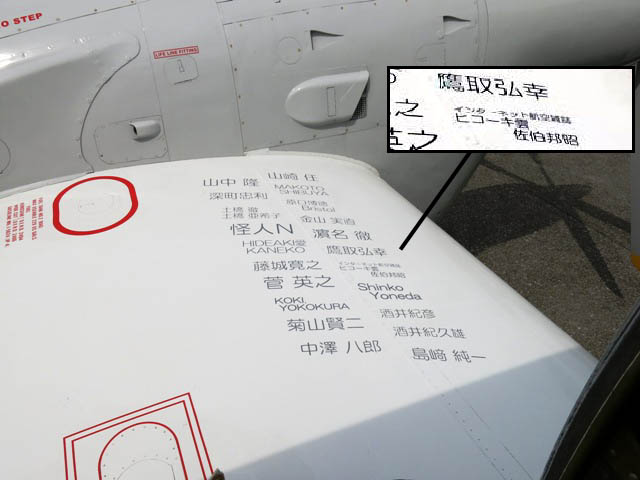 NO STEP
LIFE LINE FITTING
鷹取弘幸
之
インターネット航空雑誌
ヒコーキ雲
英之
佐伯邦昭
山中 隆
山崎 任
深町忠利
MAKOTO
SHIBUYA
土橋 徹
土橋 亜希子
Bristol
金山 実直
怪人N
濱名 徹
HIDEAKI愛
KANEKO
鷹取弘幸
藤城寛之
インターネット航空雑誌
ヒコーキ雲
佐伯邦昭
菅 英之
Shinko
Yoneda
KOKI
YOKOKURA
酒井紀彦
菊山賢二
酒井紀久雄
中澤 八郎
島﨑 純一